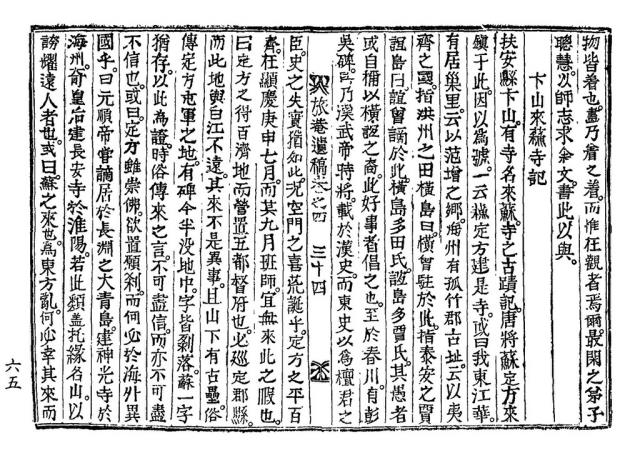 物皆着也。盡乃着之着。而惟在觀者焉爾。最閑之弟子
聰慧。以師志求余文。書此以與。
卞山來蘇寺記
扶安縣卞山。有寺名來蘇。寺之古蹟記。唐將蘇定方來
鎭于此。因以爲號。一云蘇定方建是寺。或曰我東江華。
有居巢里。云以范增之鄕。海州有孤竹郡古址。云以夷
齊之國。指洪州之田橫島曰。橫曾駐於此。指泰安之賈
誼島曰。誼曾謫於此。橫島多田氏。誼島多賈氏。其愚者
或自稱以橫誼之裔。此好事者倡之也。至於春川。自彭
吳碑。吳乃漢武帝時將。載於漢史。而東史以爲檀君之
旅菴遺稿卷之四 三十四
臣。史之失實猶如此。况空門之喜詭誕乎。定方之平百
濟。在顯慶庚申七月。而其九月班師。宜無來此之暇也。
曰定方之得百濟地。而營置五都督府也。必巡定郡縣。
而此地與白江不遠。其來不是異事。且山下有古壘。俗
傳定方屯軍之地。有碑今半沒地中。字皆剝落。蘇一字
猶存。以此爲證。時俗傳來之言。不可盡信。而亦不可盡
不信也。或曰。定方雖崇佛。欲置願刹。而何必於海外異
國乎。曰元順帝嘗謫居於長淵之大靑島。建神光寺於
海州。奇皇后建長安寺於淮陽。若此類盖托緣名山。以
誇燿遠人者也。或曰。蘇之來也。爲東方亂。何必幸其來而
六五